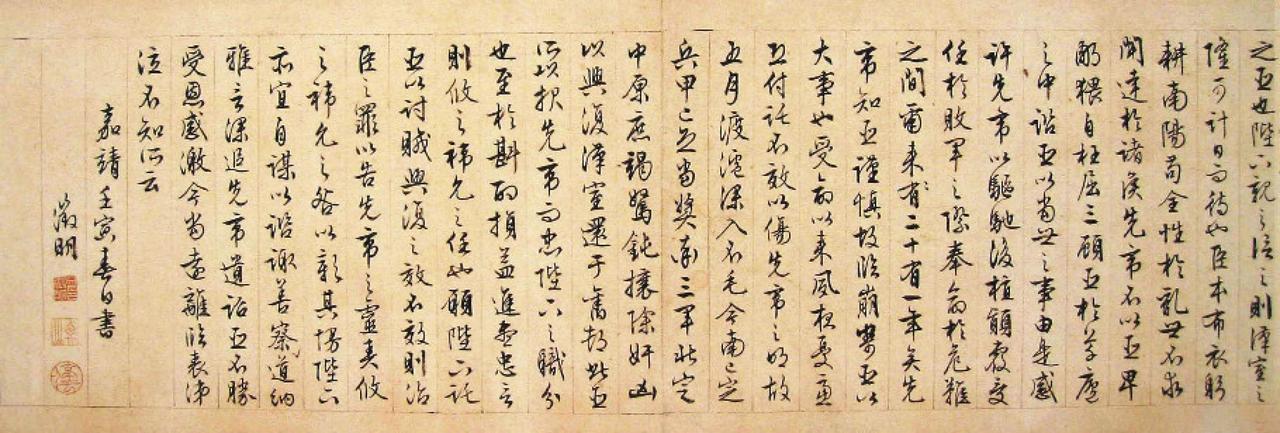 之臣也陛下親之信之則漢室之
隆可計日而待也臣本布衣躬
耕南陽苟全性於亂世不求
聞達於諸侯先帝不以臣卑
鄙猥自枉屈三顧臣於草廬
之中諮臣以當世之事由是感
許先帝以驅馳後植顛覆受
任於敗軍之際奉命於危難
之間爾来有二十有一年矣先
帝知臣謹慎故臨崩寄臣以
大事也受命以来夙夜憂慮
恐付託不效以傷先帝之明故
五月渡瀘深入不毛今南已定
兵甲已足當獎率三軍北定
中原庶竭駑鈍攘除奸凶
以興復漢室還于舊都此臣
所以報先帝而忠陛下之職分
也至於斟酌損益進盡忠言
則攸之禕允之任也願陛下託
臣以討賊興復之效不效則治
臣之罪以告先帝之靈責攸
之禕允之咎以彰其慢陛下
亦宜自謀以諮諏善察道納
雅言深追先帝遺詔臣不勝
受恩感激今當遠離臨表涕
泣不知所云
嘉靖壬寅春日書
徵明